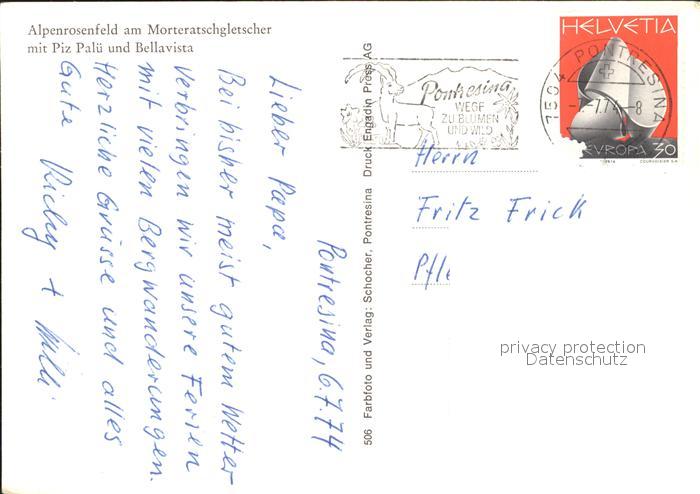 Alpenrosenfeld am Morteratschgletscher
mit Piz Palü und Bellavista
Pontresina, 6.7.74
Lieber Papa,
Bei bisher meist gutem Wetter
verbringen wir unsere Ferien
mit vielen Bergwanderungen.
Herzliche Grüsse und alles
Gute
506 Farbfoto und Verlag: Schocher, Pontresina Druck Engadin Press AG
Pontresina
WEGE
ZU BLUMEN
UND WILD
7504 PONTRESINA
-7.-7.74-8
HELVETIA
EUROPA 30
COURVOISIER S.A.
Herrn
Fritz Frick
privacy protection
Datenschutz